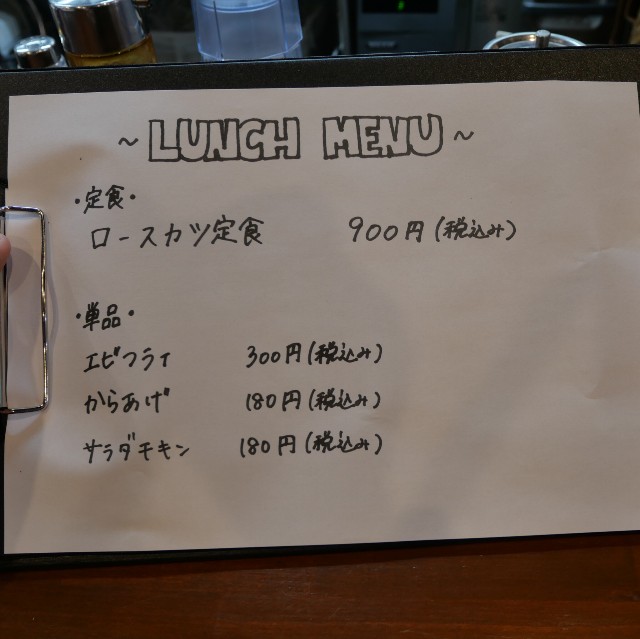 ~ LUNCH MENU ~
・定食・
ロースカツ定食 900円(税込み)
・単品・
エビフライ 300円(税込み)
からあげ 180円(税込み)
サラダチキン 180円(税込み)